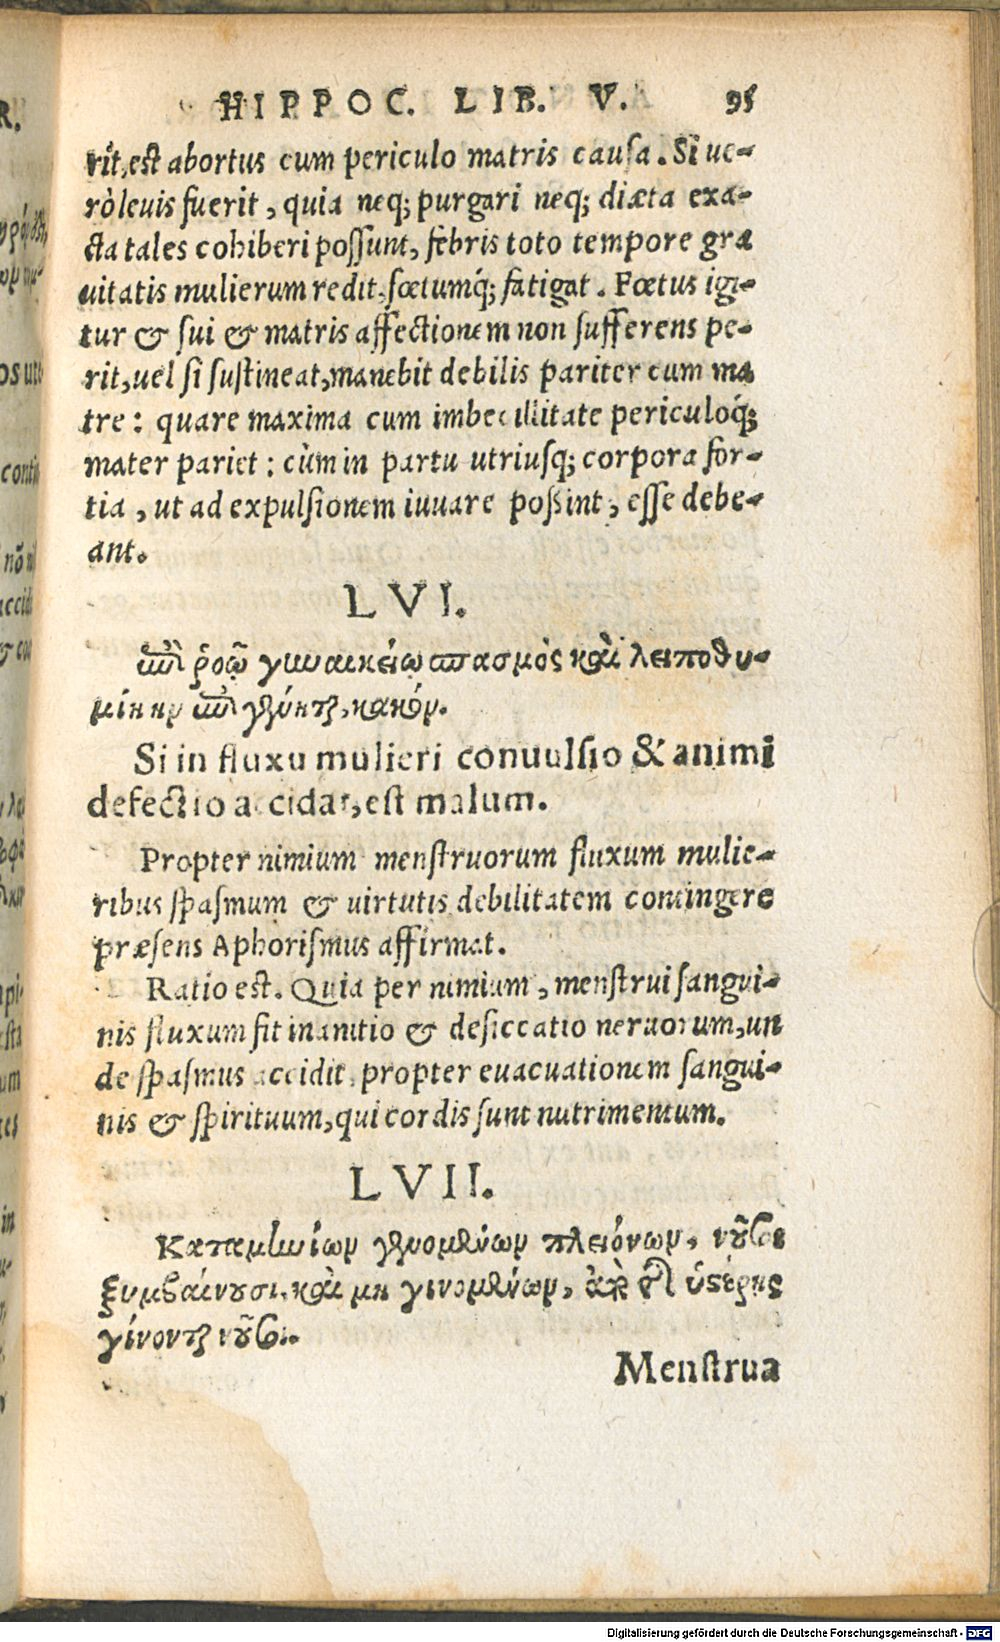 HIPPOC. LIB. V. 95
rit, est abortus cum periculo matris causa. Si ue-
rò leuis fuerit, quia neq; purgari neq; diæta exa-
cta tales cohiberi possunt, febris toto tempore gra
uitatis mulierum redit, fœtumq́; fatigat. Fœtus igi-
tur & sui & matris affectionem non sufferens pe-
rit, uel si sustineat, manebit debilis pariter cum ma
tre: quare maxima cum imbecillitate periculoq́;
mater pariet: cùm in partu utriusq; corpora for-
tia, ut ad expulsionem iuuare poßint, esse debe-
ant.
LVI.
ἐπὶ ῥοῷ γυναικείῳ σπασμὸς καὶ λειποθυ-
μίη ἢν ἐπιγένηται, κακόν.
Si in fluxu mulieri conuulsio & animi
defectio accidat, est malum.
Propter nimium menstruorum fluxum mulie-
ribus spasmum & uirtutis debilitatem contingere
præsens Aphorismus affirmat.
Ratio est. Quia per nimium, menstrui sangui-
nis fluxum fit inanitio & desiccatio neruorum, un
de spasmus accidit, propter euacuationem sangui-
nis & spirituum, qui cordis sunt nutrimentum.
LVII.
Καταμηνίων γενομένων πλειόνων, νοῦσοι
ξυμβαίνουσι, καὶ μὴ γινομένων, ἀπὸ τῆς ὑστέρης
γίνονται νοῦσοι.
Menstrua
Digitalisierung gefördert durch die Deutsche Forschungsgemeinschaft - DFG